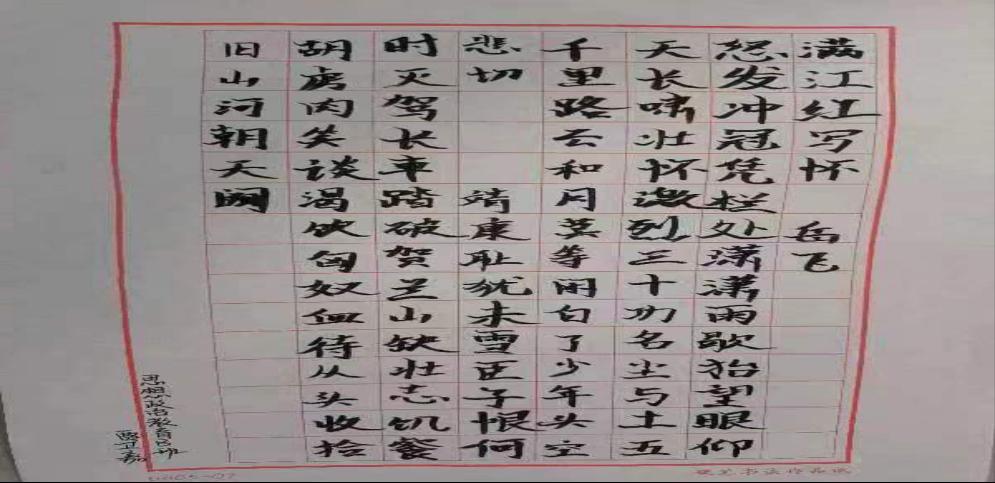 满江红写怀 岳飞
怒发冲冠凭栏处潇潇雨歇抬望眼仰
天长啸壮怀激烈三十功名尘与土五
千里路云和月莫等闲白了少年头空
悲切 靖康耻犹未雪臣子恨何
时灭驾长车踏破贺兰山缺壮志饥餐
胡虏肉笑谈渴饮匈奴血待从头收拾
旧山河朝天阙
思想政治教育